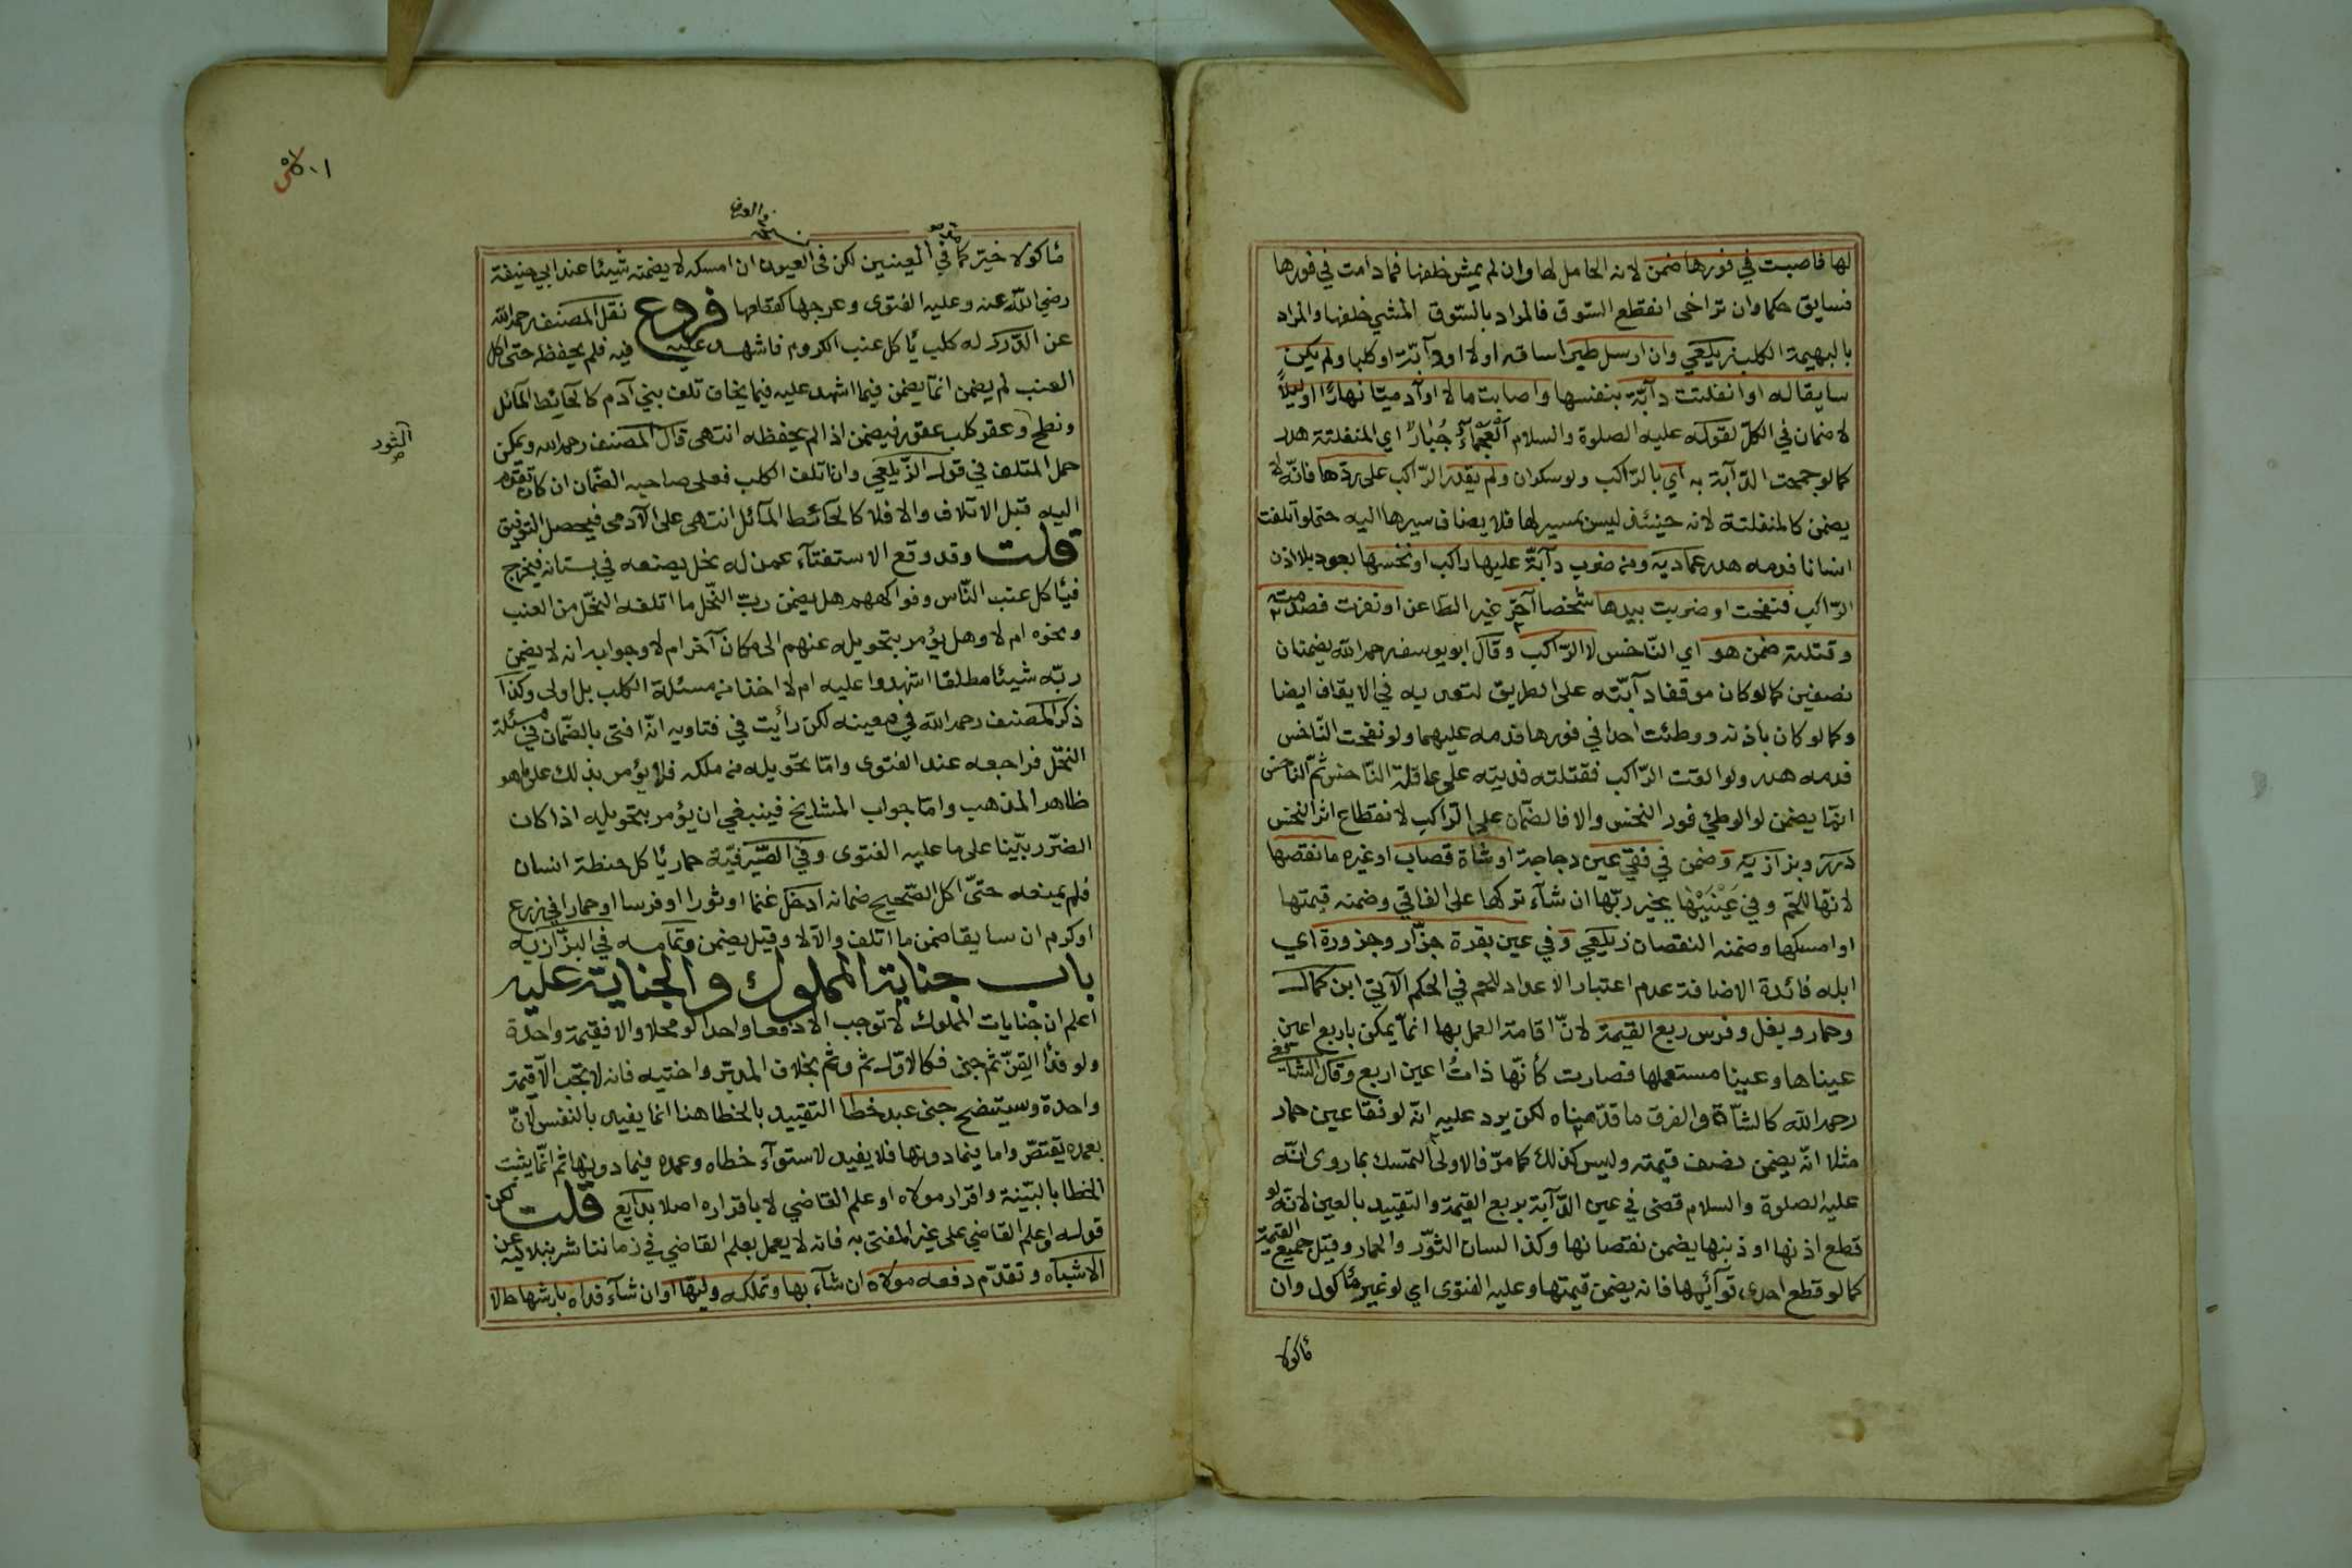 لها فاصبت في فورها ضمن لانه الحامل لها وان لم يمش خلفها فمادامت في فورها
فسايق حكما وان تراخى انقطع السّوق فالمراد بالسّوق المشي خلفها والمراد
بالبهيمة الكلب زيلعي وان ارسل طيرا ساقه اولا او دآبّة او كلبا ولم يكن
سايقا له او انفلتت دآبّة بنفسها واصابت مالا او آدميّا نهارًا او ليلًا
لا ضمان في الكلّ لقوله عليه الصلوة والسلام اَلْعَجْمَآءُ جُبَارٌ اي المنفلتة هدر
كما لو جمحت الدّآبة به اي بالرّاكب ولو سكران ولم يقدر الرّاكب على ردّها فانّه لا
يضمن كالمنفلتة لانه حينئذ ليس بمسير لها فلا يضاف سيرها اليه حتى لو اتلفت
انسانا فدمه هدر عمادية ومن ضرب دآبّة عليها راكب او نخسها بعود بلا اذن
الرّاكب فنفحت او ضربت بيدها شخصا آخر غير الطّاعن او نفرت فصدمته
وقتلته ضمن هو اي النّاخس لا الرّاكب وقال ابو يوسف رحمه الله يضمنان
نصفين كما لو كان موقفا دآبّته على الطريق لتعديه في الايقاف ايضا
وكما لو كان باذنه ووطئت احدا في فورها فدمه عليهما ولو نفحت النّاخس
فدمه هدر ولو القت الرّاكب فقتلته فديته على عاقلة النّاخس ثمّ النّاخس
انّما يضمن لو الوطئ فور النخس والا فالضّمان على الرّاكب لانقطاع اثر النخس
درر وبزازية وضمن في فقئ عين دجاجة او شاة قصاب او غيره ما نقصها
لانّها للحم وفي عَيْنَيْهَا يخير ربّها ان شآء تركها على الفاقي وضمنه قيمتها
او امسكها وضمنه النقصان زيلعي وفي عين بقرة جزّار وجزورة اي
ابله فائدة الاضافة عدم اعتبار الاعداد للحم في الحكم الآتي ابن كمال
وحمار وبغل وفرس ربع القيمة لانّ اقامة العمل بها انمّا يمكن باربع اعين
عيناها وعينا مستعملها فصارت كأنّها ذاتُ اعين اربع وقال الشافعي
رحمه الله كالشّاة والفرق ما قدّمناه لكن يرد عليه انّه لو فقا عين حمار
مثلا انّه يضمن نصف قيمته وليس كذلك كما مرّ فالاولى التمسك بما روى انّه
عليه الصلوة والسلام قضى في عين الدّآبة بربع القيمة والتقييد بالعين لانّه لو
قطع اذنها او ذنبها يضمن نقصانها وكذا لسان الثوّر والحمار وقيل جميع القيمة
كما لو قطع احدى قوآئمها فانه يضمن قيمتها وعليه الفتوى اي لو غير مأكول وان
مأكولا
مأكولا خير كما في المعينين لكن في العيون ان امسكه لا يضمنه شيئا عند ابي حنيفة
رضي الله عنه وعليه الفتوى وعرجها كقطعها فروع نقل المصنف رحمه الله
عن الدّرر له كلب يأكل عنب الكروم فاشهد عليه فيه فلم يحفظه حتى اكل
العنب لم يضمن انمّا يضمن فيما اشهد عليه فيما يخاف تلف بني آدم كالحآئط المآئل
ونطح وعقر كلب عقور فيضمن اذا لم يحفظه انتهى قال المصنف رحمه الله ويمكن
الثور
حمل المتلف في قول الزّيلعي وان اتلف الكلب فعلى صاحبه الضّمان ان كان تقدّم
اليه قبل الاتلاف والا فلا كالحآئط المآئل انتهى على الآدمي فيحصل التوفيق
قلت وقد وقع الاستفتآء عمن له نحل يضعه في بستانه فيخرج
فيأكل عنب النّاس وفواكههم هل يضمن ربّ النّحل ما اتلفه النّحل من العنب
ونحوه ام لا وهل يؤمر بتحويله عنهم الى مكان آخر ام لا وجوابه انه لا يضمن
ربّه شيئا مطلقا اشهدوا عليه ام لا اخذا من مسئلة الكلب بل اولى وكذا
ذكر المصنف رحمه الله في معينه لكن رأيت في فتاويه انّه افتى بالضّمان في مسئلة
النحّل فراجعه عند الفتوى وامّا تحويله من ملكه فلا يؤمر بذلك على ما هو
ظاهر المذهب وامّا جواب المشايخ فينبغي ان يؤمر بتحويله اذا كان
الضّرر بيّنا على ما عليه الفتوى وفي الصّيرفيّة حمار يأكل حنطة انسان
فلم يمنعه حتىّ اكل الصّحيح ضمانه ادخل غنما او ثورا او فرسا او حمارا في زرع
او كرم ان سايقا ضمن ما اتلف والّا لا وقيل يضمن وتمامه في البزّازية
باب جناية المملوك والجناية عليه
اعلم ان جنايات المملوك لا توجب الا دفعا واحدا لو محلا والا فقيمة واحدة
ولو فدأ القنّ ثم جنى فكالاوّل ثم وثم بخلاف المدبّر واختيه فانه لا يجب الّا قيمة
واحدة وسيتضح جنى عبد خطأ التقييد بالخطا هنا انما يفيد بالنفس لانّ
بعمده يقتصّ واما فيما دونها فلا يفيد لاستوآء خطاه وعمده فيما دونها ثم انّما يثبت
الخطا بالبيّنة واقرار مولاه او علم القاضي لا باقراره اصلا بدآيع قلت لكن
قوله او علم القاضي على غير المفتى به فانه لا يعمل بعلم القاضي في زماننا شرنبلاليه عن
الاشباه وتقدّم دفعه مولاه ان شآء بها وتملكه وليّها او ان شآء فداه بارشها حالا